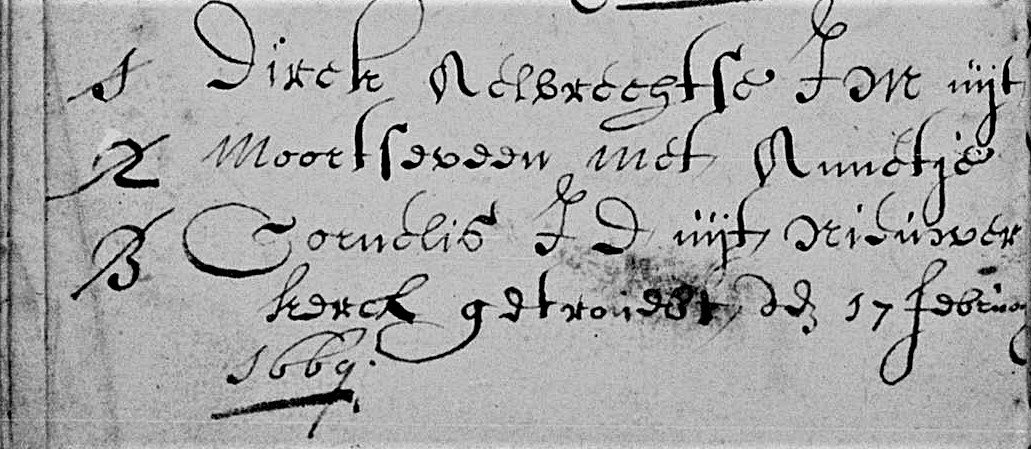 1 Dirck Aelbrechtse J M uijt
2 Moortseveen met Annetje
3 Cornelis J D uijt Nieuwer
kerck getrouwt den 17 februa
1669.